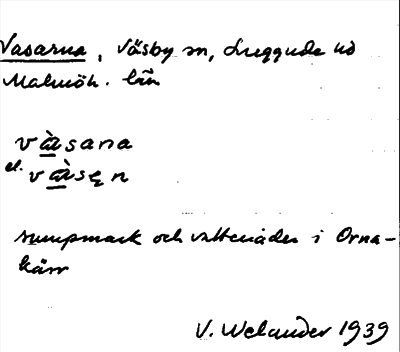 Vasarna, Väsby sn, Luggude hd
Malmöh. län
và̱sana
el. và̱sęn
sumpmark och vattenåder i Orna-
kärr
V. Welander 1939